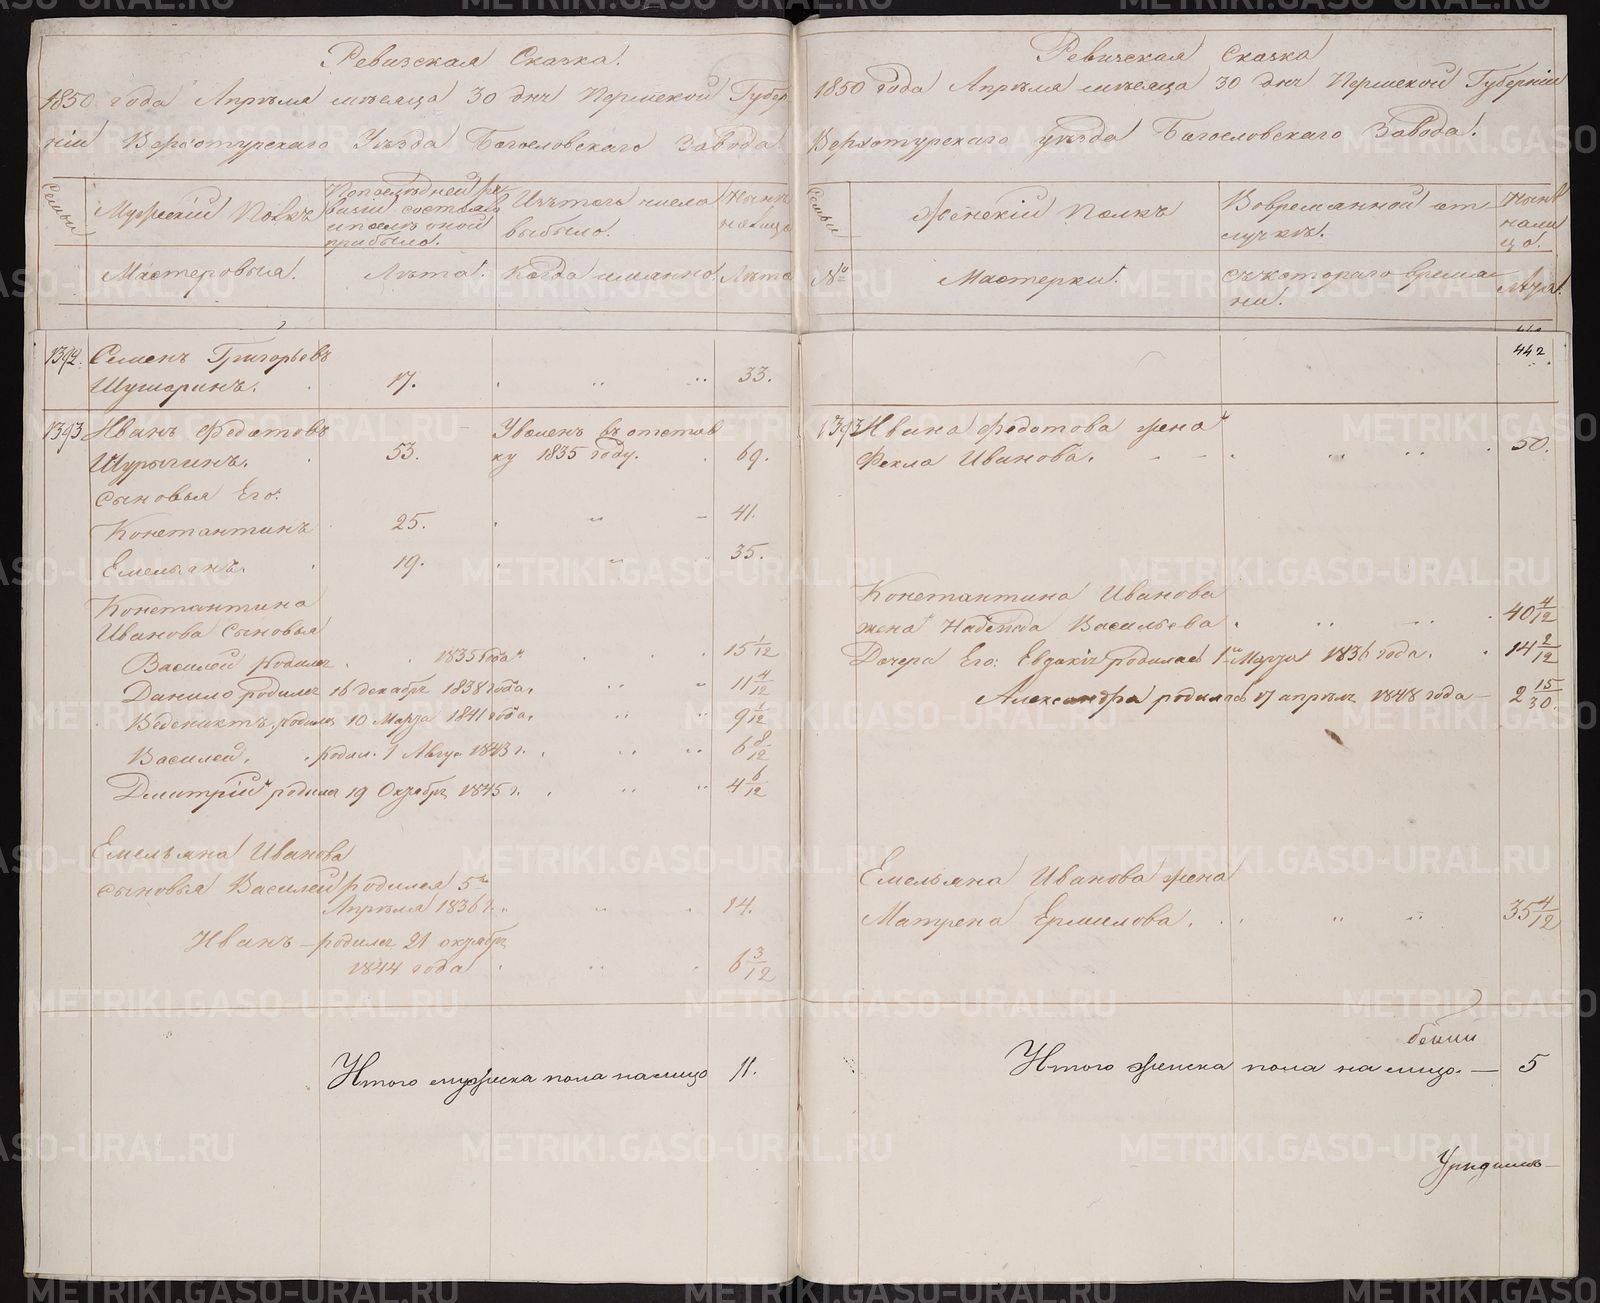 Ревизская Сказка.
1850 года Апреля месяца 30 дня Пермской Губер
ніи Верхотурскаго Уѣзда Богословскаго Завода
Семьи
Мужескій Полкъ
Попослѣдней ре
визіи состояло
и послѣ оной
прибыло.
Изътого числа
выбыло.
Нынѣ
налицо
Мастеровыя.
Лѣта.
Когда имянно.
Лѣта
1392. Семенъ Григорьевъ
Шушаринъ. 17. 33.
1393 Иванъ Федотовъ Уволенъ въ отстав
Шурыгинъ. 53. ку 1835 году. 69.
Сыновья Его:
Константинъ 25. 41.
Емельянъ. 19. 35.
Константина
Иванова Сыновья
Василей родился 1835 года 15 1/12
Данило родился 16 декабря 1838 года. 11 4/12
Веденихтъ родился 10 Марта 1841 года. 9 1/12
Василей, родил. 1 Авгус 1843 г. 6 8/12
Дмитрій родился 19 Октября 1845 г. 4 6/12
Емельяна Иванова
сыновья Василей родился 5го
Апреля 1836 г. 14.
Иванъ – родился 21 октября
1844 года 6 3/12
Итого мужеска пола налицо 11.
Ревизская Сказка
1850 года Апреля месяца 30 дня Пермской Губерніи
Верхотурскаго уѣзда Богословскаго Завода.
Семьи
Женскій Полкъ
Вовременной от
лучкѣ.
Нынѣ
нали
цо.
№
Мастерки.
съкотораго време
ни.
Лѣта.
442
1393 Ивана Федотова жена
Фекла Иванова. 50.
Константина Иванова
жена Надежда Васильева 40 4/12
Дочери Его: Евдокія родилась 1го Марта 1836 года. 14 2/12
Александра родилась 17 апреля 1848 года – 2 15/30.
Емельяна Иванова жена
Матрена Ермилова. 35 4/12
Итого женска пола на лицо. — 5
METRIKI.GASO-URAL.RU